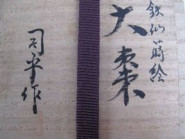 鉄仙蒔絵
大棗
司峯作